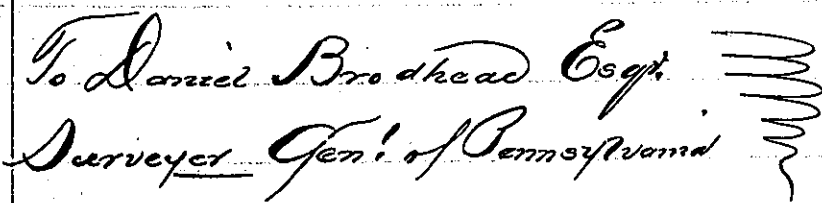 To Daniel Brodhead Esqr.
Surveyor Genl. of Pennsylvania